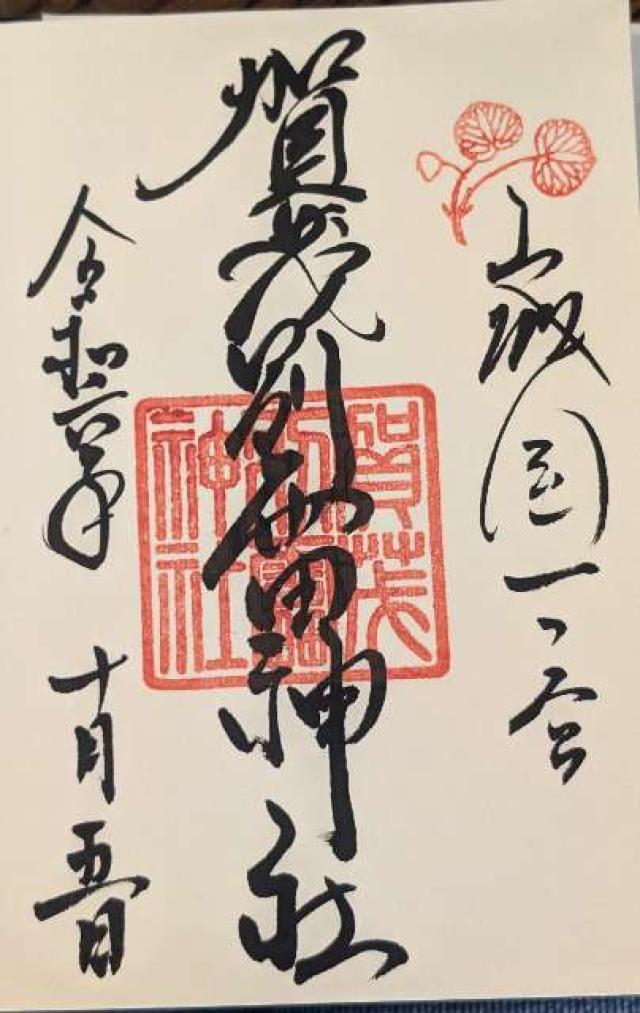 山城国一ノ宮
賀茂別雷神社
賀茂別雷神社
令和六年 十月五日